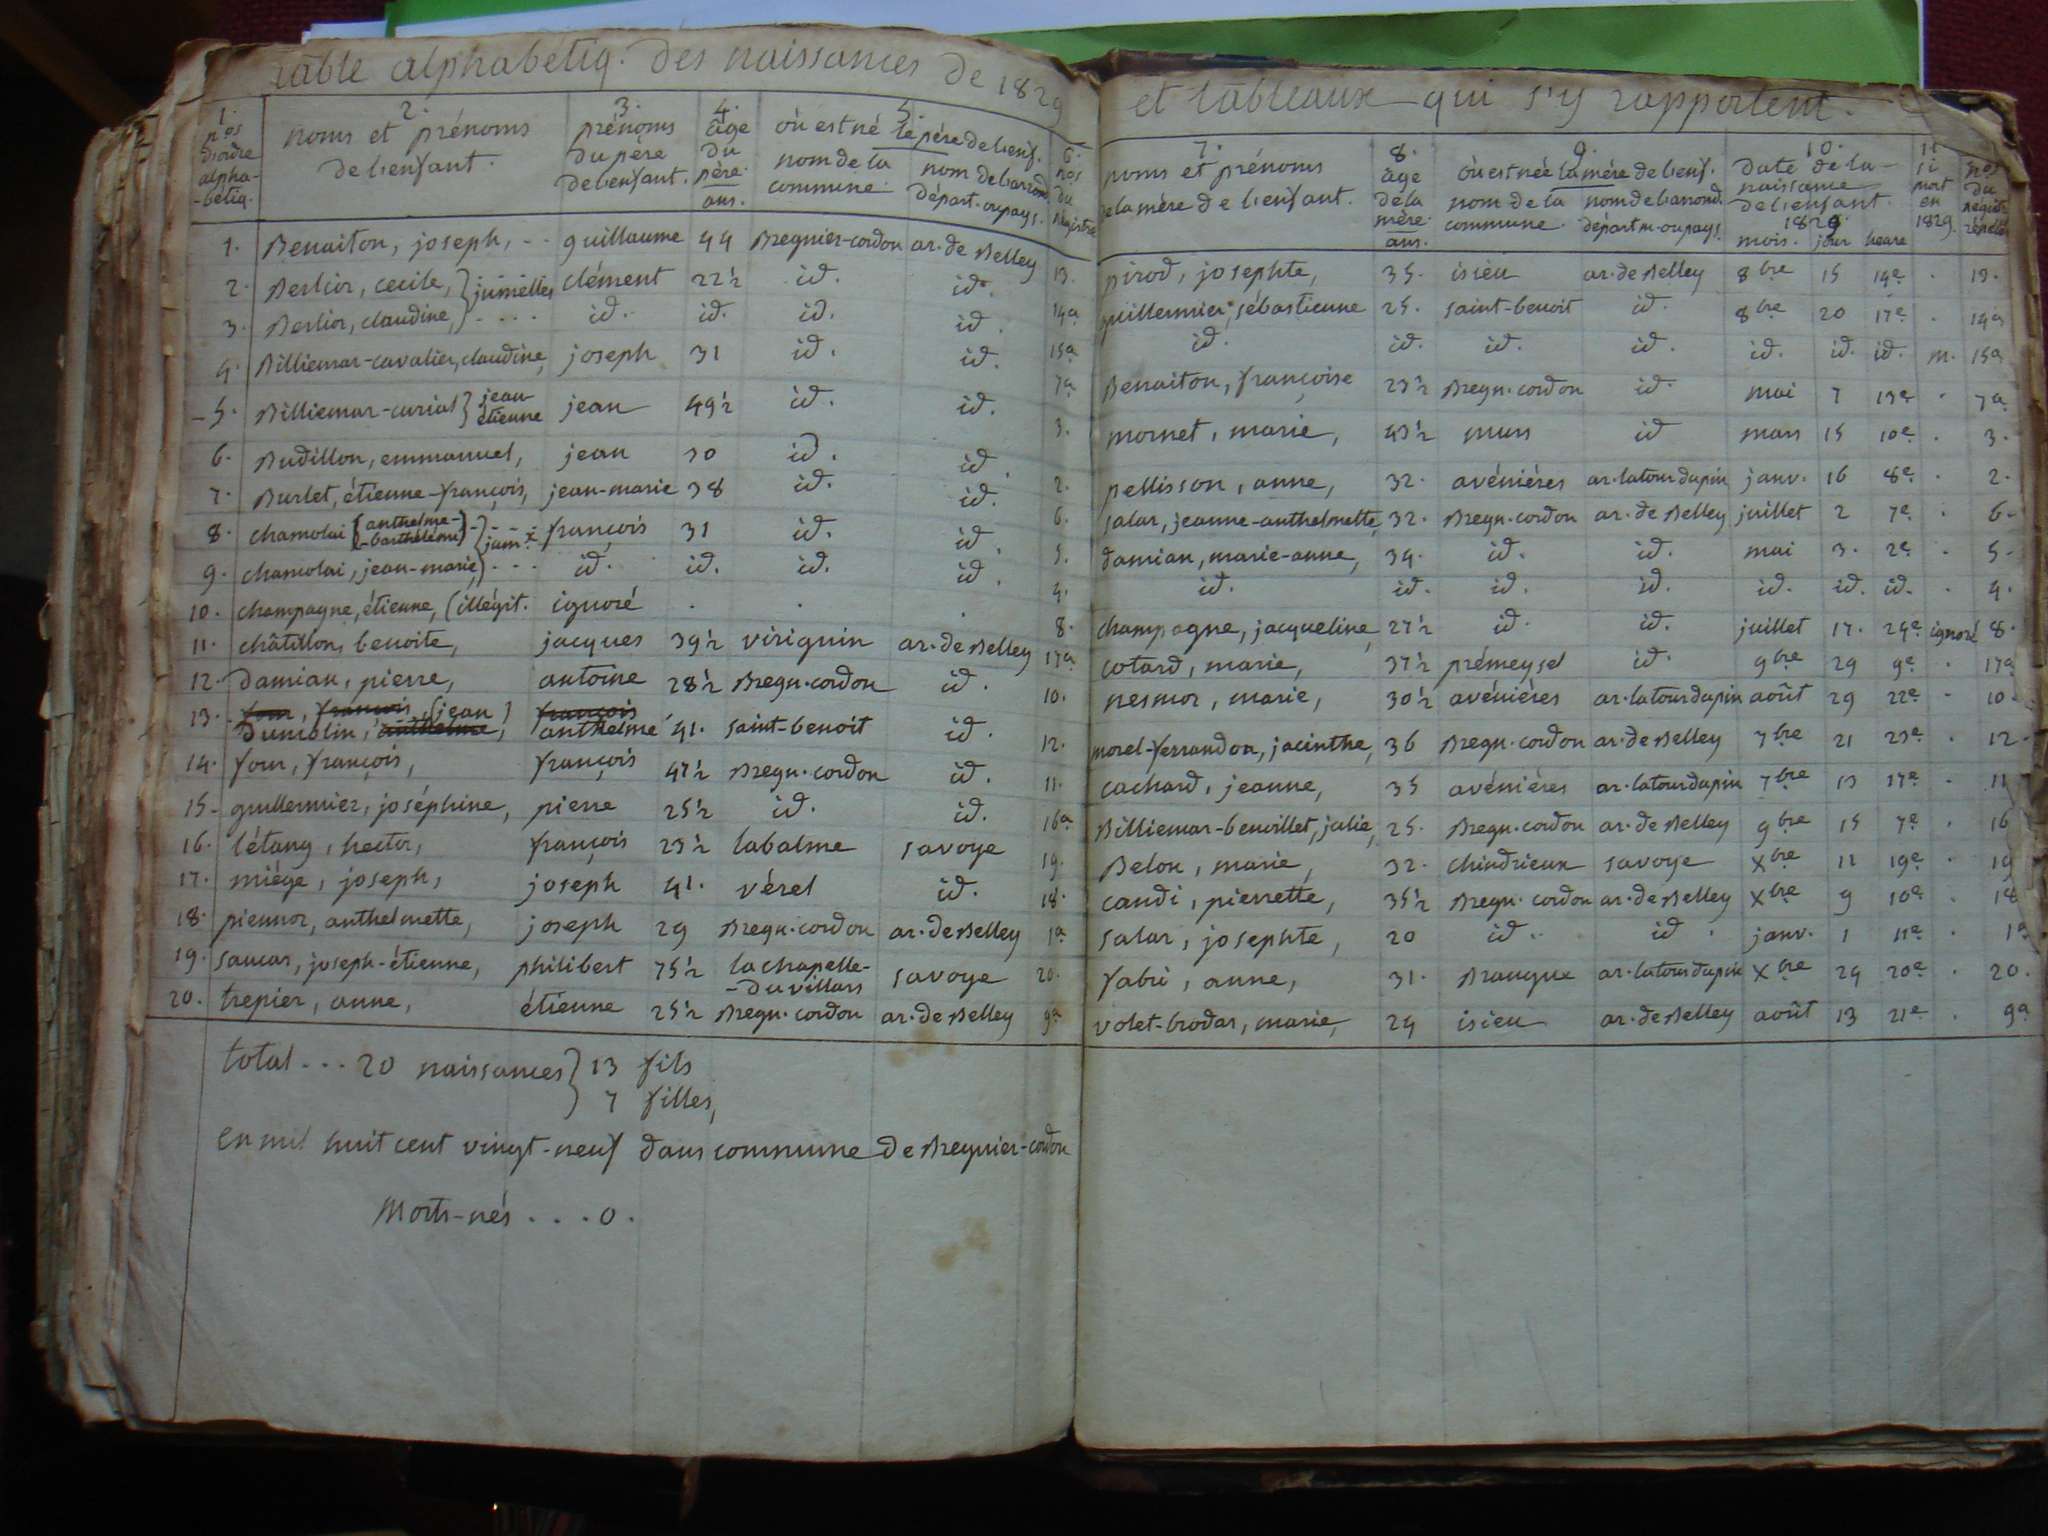 table alphabétiq. des naissances de 1829 et tableaux qui s'y rapportent.
1. nos d'ordre alpha--bétiq. 2. noms et prénoms de l'enfant. 3. prénoms du père de l'enfant. 4. âge du père. ans. 5. où est né le père de l'enf. nom de la commune. nom de l'arrond. départ. ou pays. 6. nos du registre 7. noms et prénoms de la mère de l'enfant. 8. âge de la mère. ans. 9. où est née la mère de l'enf. nom de la commune. nom de l'arrond. départm. ou pays. 10. date de la naissance de l'enfant. 1829. mois. jour heure 11 si mort en 1829. nos du registr. répétés
1. Benaiton, joseph, -- guillaume 44 Bregnier-cordon ar. de Belley 13. pirod, josephte, 35. isieu ar. de Belley 8bre 15 14e . 13.
2. Berlior, cecile, } jumelles clément 22½ id. id. 14a guillermier, sébastienne 25. saint-benoit id. 8bre 20 17e . 14a
3. Berlior, claudine, } .... id. id. id. id. 15a id. id. id. id. id. id. id. m. 15a
4. Billiemar-cavalier, claudine, joseph 31 id. id. 7a Benaiton, françoise 23½ Bregn.cordon id. mai 7 13e . 7a
5. Billiemar-curial } jean-étienne jean 49½ id. id. 3. mornet, marie, 43½ murs id mars 15 10e . 3.
6. Budillon, emmanuel, jean 30 id. id. 2. pellisson, anne, 32. avénières ar. latourdupin janv. 16 8e . 2.
7. Burlet, étienne-françois, jean-marie 38 id. id. 6. salar, jeanne-anthelmette, 32. Bregn.cordon ar. de Belley juillet 2 7e . 6.
8. chamolai (anthelme--barthélemi) } jum.x françois 31 id. id. 5. damian, marie-anne, 34. id. id. mai 3. 2e . 5.
9. chamolai, jean-marie, } ... id. id. id. id. 4. id. id. id. id. id. id. id. . 4.
10. champagne, étienne, (illégit. ignoré . . . 8. champagne, jacqueline, 27½ id. id. juillet 17. 24e ignoré 8.
11. châtillon, benoite, jacques 39½ virignin ar. de Belley 17a cotard, marie, 37½ prémeysel id. 9bre 29 9e . 17a
12. damian, pierre, antoine 28½ Bregn.cordon id. 10. nesmor, marie, 30½ avénières ar. latourdupin août 29 22e . 10.
13. four, françois, (jean) françois
Dumolin, anthelme, anthelme 41. saint-benoit id. 12. morel-ferrandon, jacinthe, 36 Bregn.cordon ar. de Belley 7bre 21 23e . 12.
14. four, françois, françois 47½ Bregn.cordon id. 11. cachard, jeanne, 35 avénières ar. latourdupin 7bre 13 17e . 11
15. guillermier, joséphine, pierre 25½ id. id. 16a Billiemar-benvillet, julie, 25. Bregn.cordon ar. de Belley 9bre 15 7e . 16
16. létang, hector, françois 23½ labalme savoye 19. Belon, marie, 32. chindrieux savoye Xbre 11 19e . 19
17. miège, joseph, joseph 41. vérel id. 18. caudi, pierrette, 35½ Bregn.cordon ar. de Belley Xbre 9 10e . 18
18. piennor, anthelmette, joseph 29 Bregn.cordon ar. de Belley 1a salar, josephte, 20 id. id. janv. 1 11e . 1a
19. saucar, joseph-étienne, philibert 75½ lachapelle--du villars savoye 20. fabri, anne, 31. Brangue ar. latourdupin Xbre 24 20e . 20.
20. trepier, anne, étienne 25½ Bregn.cordon ar. de Belley 9a volet-brodar, marie, 24 isieu ar. de Belley août 13 21e . 9a
total ... 20 naissances } 13 fils
7 filles,
en mil huit cent vingt-neuf dans commune de Bregnier-cordon
Morts-nés .... 0.